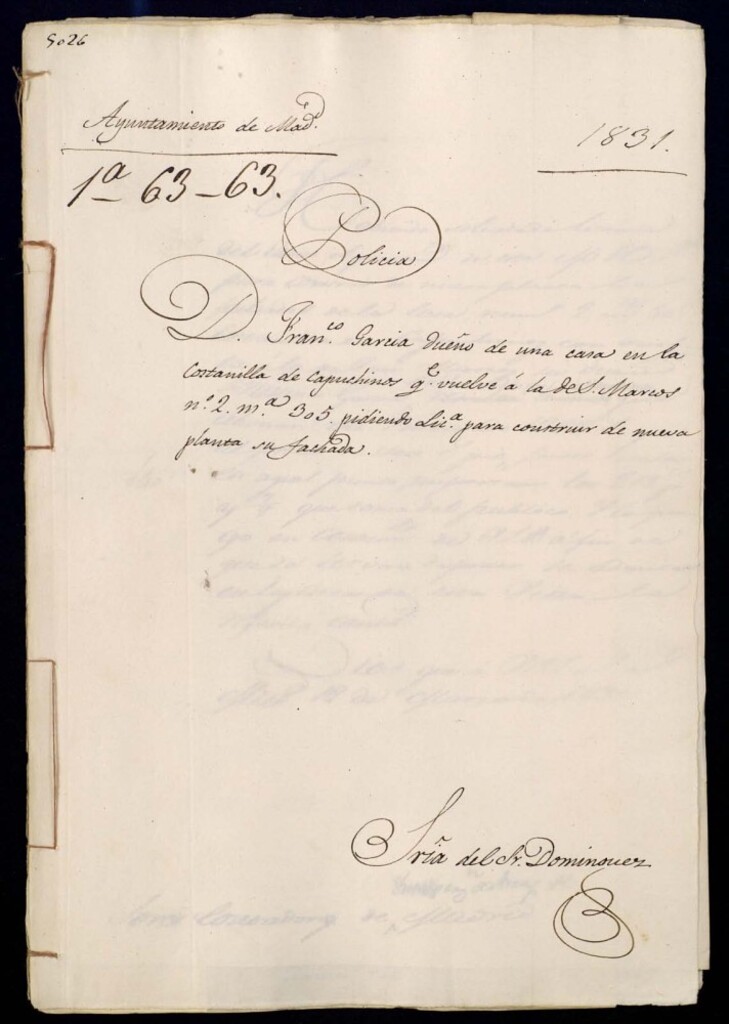 5026
Ayuntamiento de Mad.^d
1831.
1ª 63-63.
Policia
D. Fran.^co Garcia dueño de una casa en la
Costanilla de Capuchinos q.^e vuelve á la de S. Marcos
n.º 2. m.ª 305. pidiendo Lic.ª para construir de nueva
planta su fachada.
Sria del Sr. Dominguez